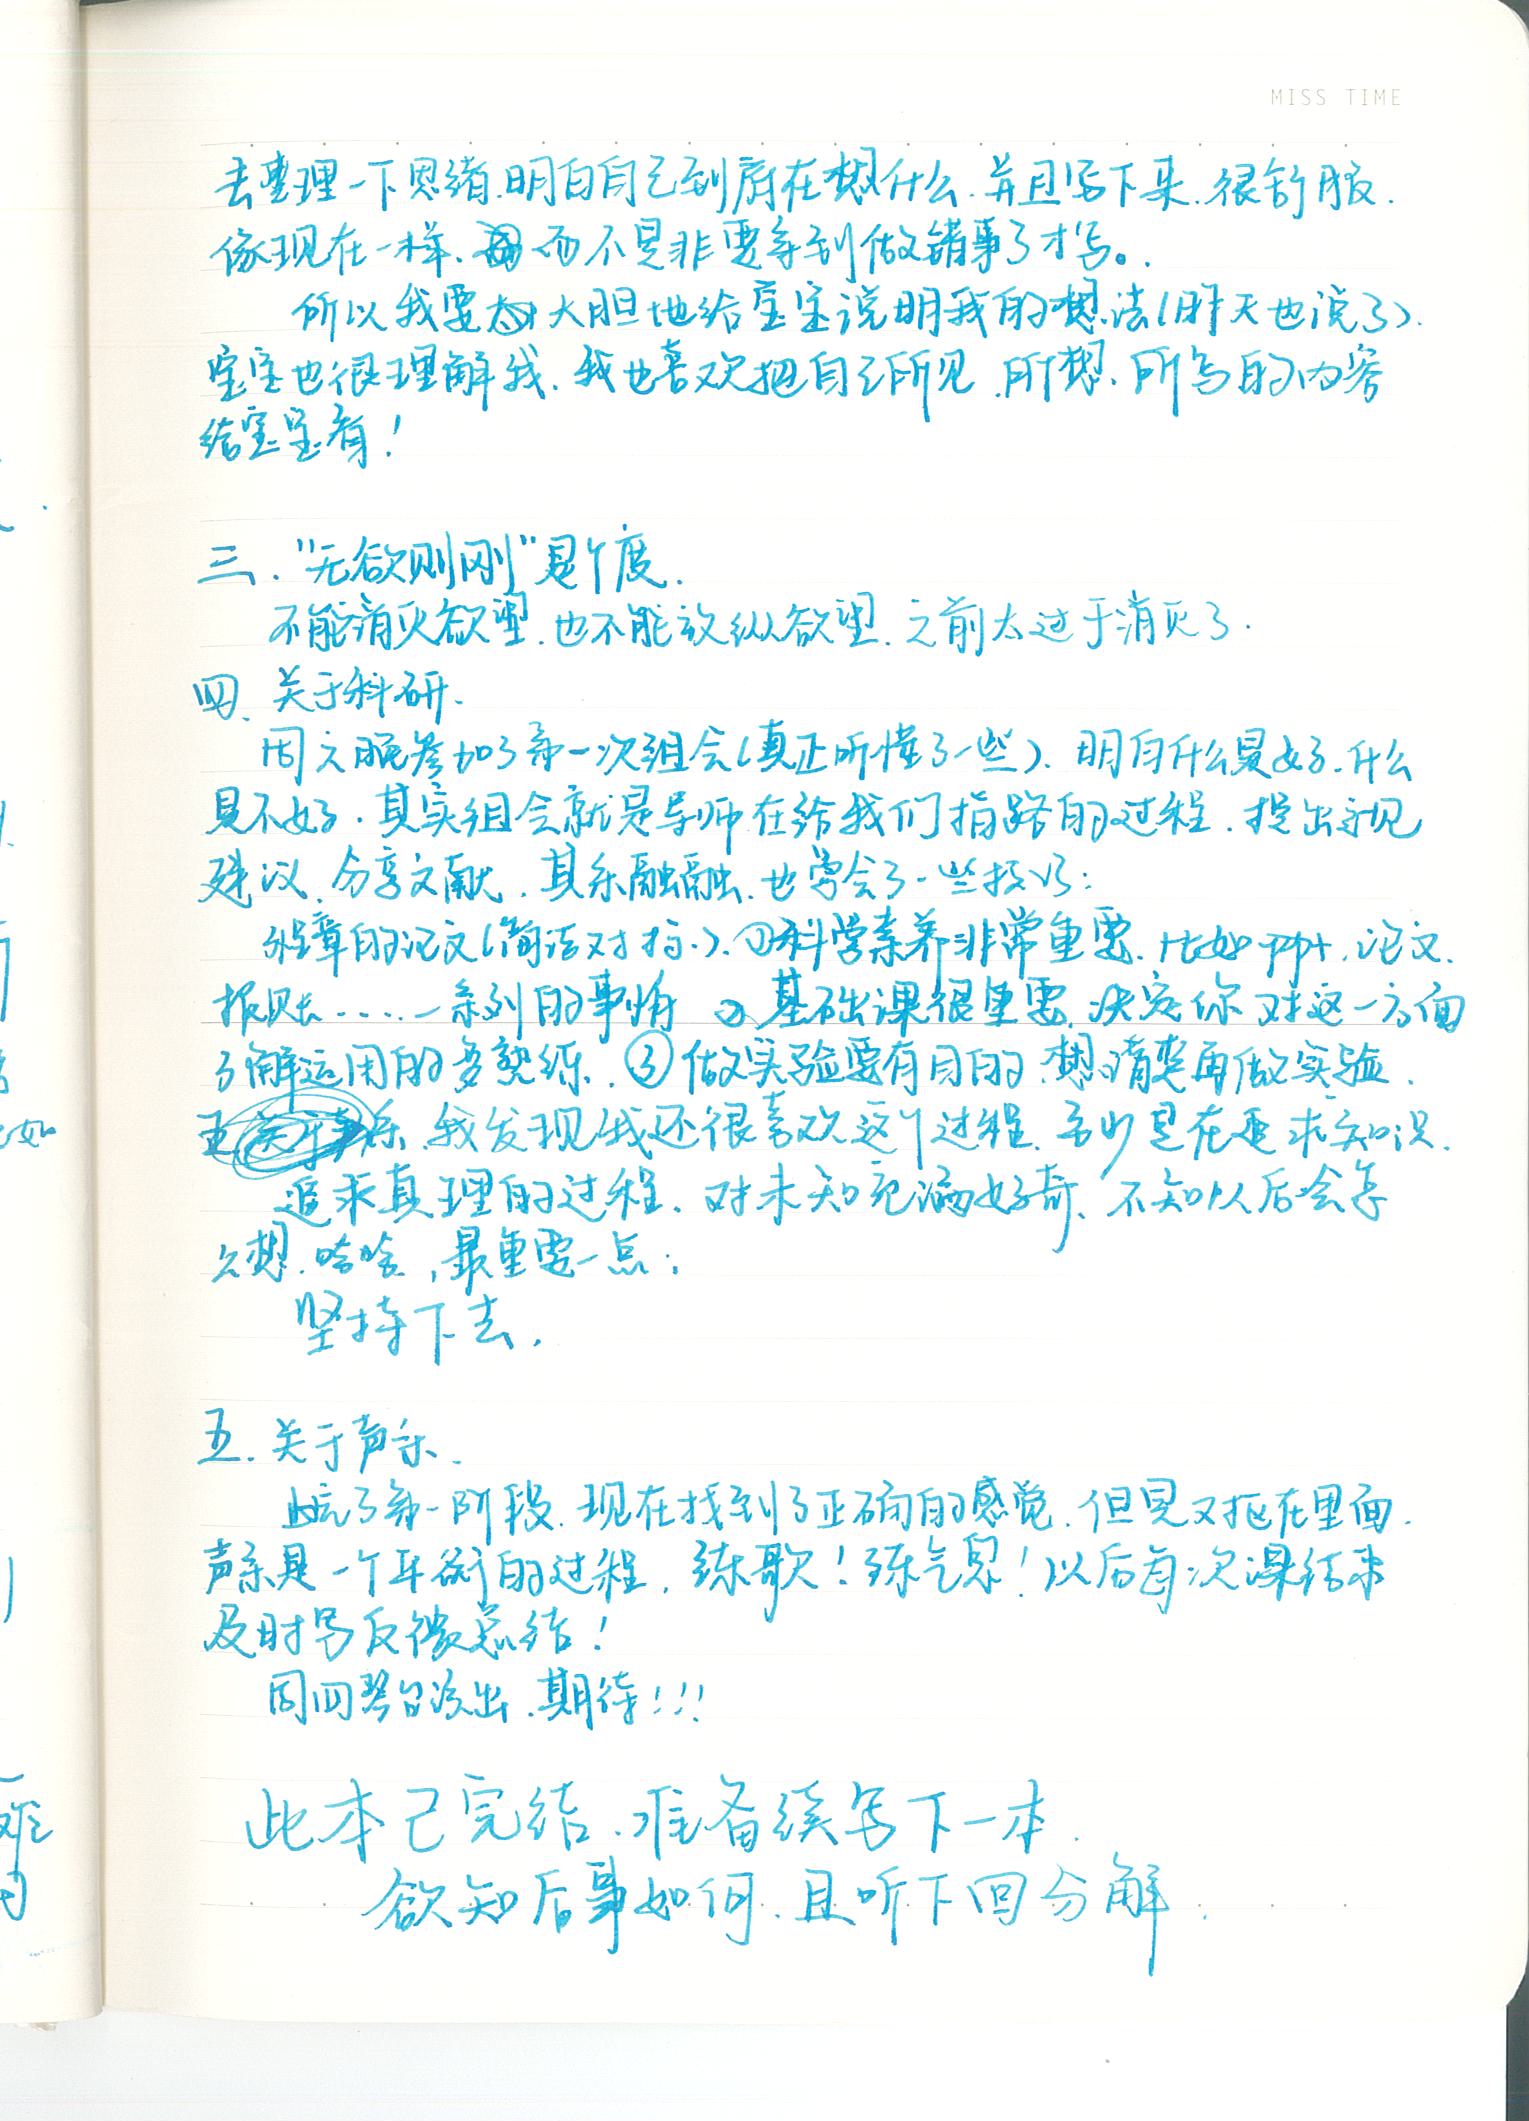 MISS TIME
去整理一下思绪.明白自己到底在想什么.并且写下来.很舒服.
像现在一样.而不是非要等到做错事了才写。
所以我要大胆地给宝宝说明我的想法(昨天也说了).
宝宝也很理解我.我也喜欢把自己所见.所想.所写的内容
给宝宝看!
三."无欲则刚"是个度.
不能消灭欲望.也不能放纵欲望.之前太过于消灭了.
四.关于科研.
周六晚参加了第一次组会(真正听懂了一些).明白什么是好.什么
是不好.其实组会就是导师在给我们指路的过程.提出意见
建议.分享文献.其乐融融.也学会了一些技巧:
的论文(简洁对 ).①科学素养非常重要.比如ppt.论文.
报账.....一系列的事情 ②基础课很重要.决定你对这一方面
了解运用的多熟练.③做实验要有目的.想清楚再做实验.
我发现我还很喜欢这个过程.至少是在追求知识.
追求真理的过程.对未知充满好奇.不知以后会怎
么想.哈哈,最重要一点:
坚持下去.
五.关于声乐.
了第一阶段.现在找到了正确的感觉.但是又 在里面.
声乐是一个 的过程.练歌!练气息!以后每次课结束
及时写反馈总结!
周四琴台演出.期待!!!
此本已完结.准备续写下一本.
欲知后事如何.且听下回分解.